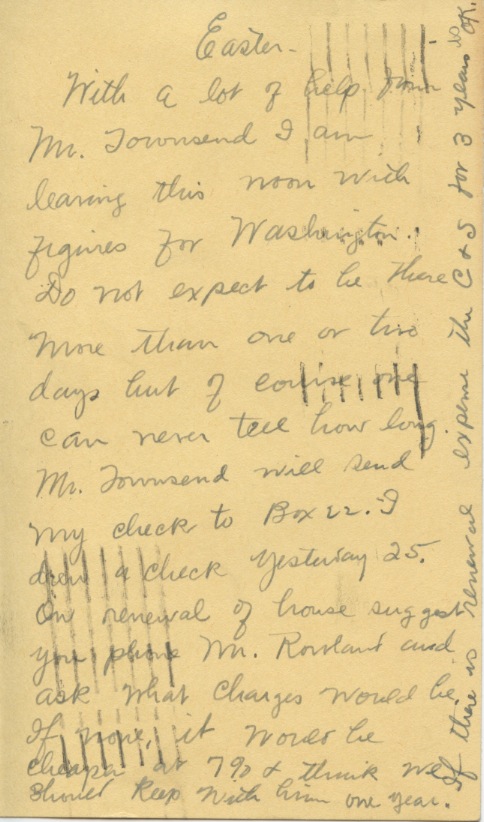 Easter -
With a lot of help from
Mr. Townsend I am
leaving this noon with
figures for Washington.
Do not expect to be there
more than one or two
days but of course one
can never tell how long.
Mr. Townsend will send
my check to Box 22. I
drew a check yesterday 25.
On renewal of house suggest
you phone Mr. Rowland and
ask what charges would be.
If none, it would be
cheaper at 7% & think we
should keep with him one year.
If there is renewal expense the C & S for 3 years is OK.